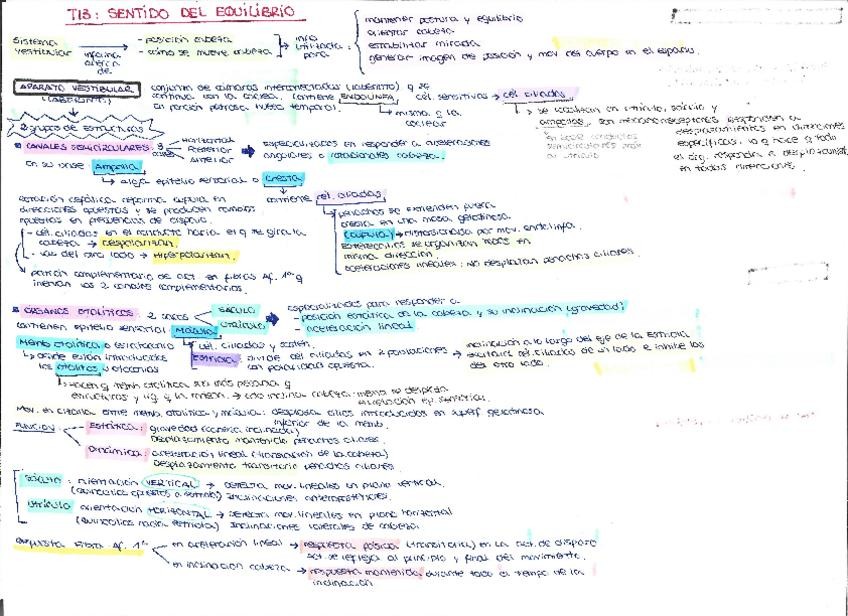 T13: SENTIDO DEL EQUILIBRIO
Sistema vestibular informa acerca de
- posición cabeza
- cómo se mueve cabeza
info utilizada para:
mantener postura y equilibrio
orientar cabeza
estabilizar mirada
generar imagen de posición y mov. del cuerpo en el espacio.
APARATO VESTIBULAR (LABERINTO)
conjunto de cámaras interconectadas (laberinto) q se
continua con la cóclea. Contiene ENDOLINFA
en porción petrosa hueso temporal.
misma q la coclear
cél. sensitivas → cél. ciliadas
se localizan en utrículo, sáculo y
ampollas. Son mecanorreceptores. Responden a
desplazamientos en direcciones
específicas, lo q hace q todo
el órg. responda a desplazamient.
en todas direcciones.
2 grupos de estructuras
CANALES SEMICIRCULARES: 3
Horizontal
Posterior
Anterior
especializados en responder a aceleraciones
angulares o rotacionales cabeza.
en su base Ampolla
aloja epitelio sensorial o Cresta
contiene cél. ciliadas
penachos se extienden fuera
cresta en una masa gelatinosa
(cúpula) → distorsionada por mov. endolinfa.
Estereocilios se organizan todos en
misma dirección.
aceleraciones lineales: No desplazan penachos ciliares.
direcciones opuestas y se producen cambios
opuestos en frecuencias de disparo.
- cél. ciliadas en el conducto hacia el q se gira la
cabeza → despolarizan.
- las del otro lado → hiperpolarizan.
patrón complementario de act. en fibras Af. 1ª q
inervan los 2 canales complementarios.
ÓRGANOS OTOLÍTICOS: 2 sacos
SÁCULO
UTRÍCULO
especializados para responder a
- posición estática de la cabeza y su inclinación (gravedad)
- aceleración lineal
contienen epitelio sensorial: Mácula
cél. ciliadas y sostén.
Memb otolítica o estatoconio
donde están introducidos
los otolitos u otoconias
Estriola: divide cél. ciliadas en 2 poblaciones
con polaridad opuesta.
inclinación a lo largo del eje de la estriola
excitará cél. ciliadas de un lado e inhibe las
del otro lado.
Hacen q memb otolítica sea más pesada q
Mov. en cizalla entre memb. otolítica y mácula: desplaza cilios introducidos en superf gelatinosa
inferior de la memb.
FUNCIÓN
Estática: gravedad (cabeza inclinada)
Desplazamiento mantenido penachos ciliares.
Dinámica: aceleración lineal (translación de la cabeza)
Desplazamiento transitorio penachos ciliares.
Sáculo: orientación VERTICAL → detecta mov. lineales en plano vertical.
(quinocilios opuestos a estriola) Inclinaciones anteroposteriores.
Utrículo orientación HORIZONTAL → detecta mov. lineales en plano horizontal
(quinocilios hacia estriola) Inclinaciones laterales de cabeza.
respuesta Fibra Af. 1ª
en aceleración lineal → respuesta fásica (transitoria) en la act. de disparo
act. se refleja al principio y final del movimiento.
en inclinación cabeza → respuesta mantenida, durante todo el tiempo de la
inclinación